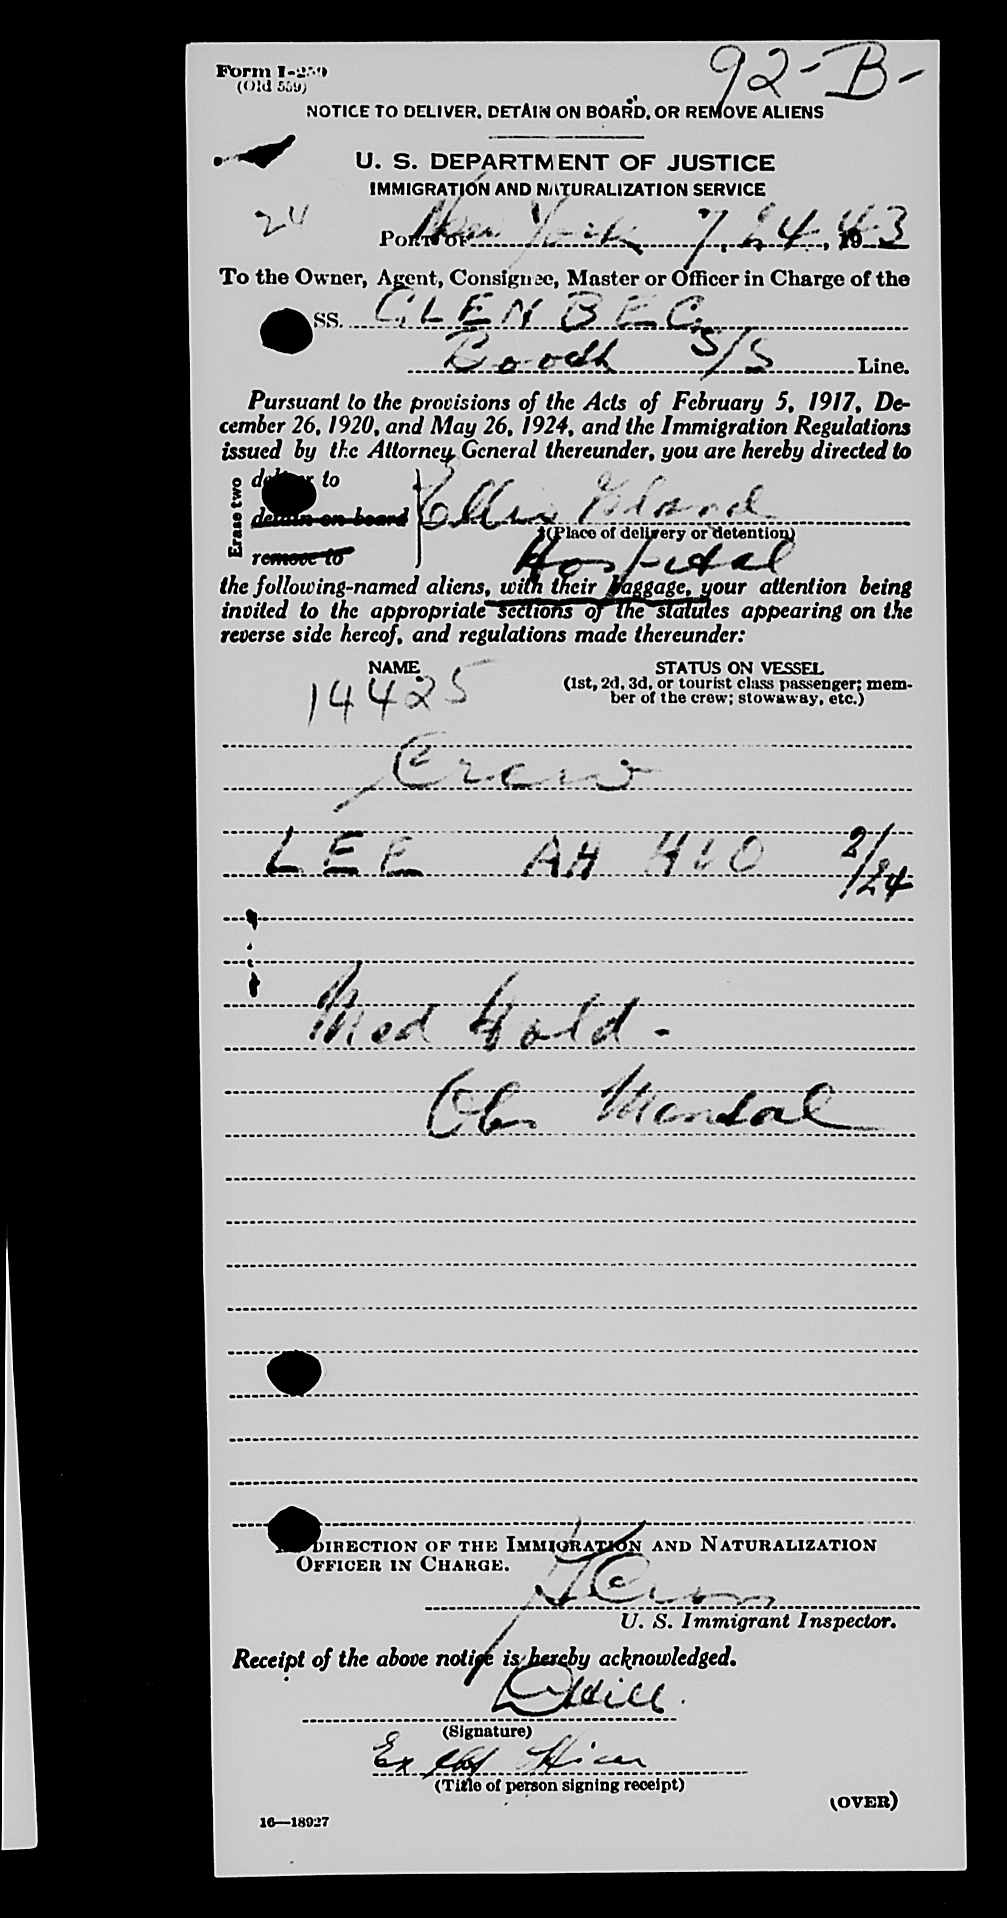 92-B-
Form I-259
(Old 559)
NOTICE TO DELIVER, DETAIN ON BOARD, OR REMOVE ALIENS
U. S. DEPARTMENT OF JUSTICE
IMMIGRATION AND NATURALIZATION SERVICE
24
PORT OF New York 7, 24, 1943
To the Owner, Agent, Consignee, Master or Officer in Charge of the
SS. GLENBEG
Booth S/S Line.
Pursuant to the provisions of the Acts of February 5, 1917, De-
cember 26, 1920, and May 26, 1924, and the Immigration Regulations
issued by the Attorney General thereunder, you are hereby directed to
Erase two
deliver to
detain on board
remove to
Ellis Island
(Place of delivery or detention)
Hospital
the following-named aliens, with their baggage, your attention being
invited to the appropriate sections of the statutes appearing on the
reverse side hereof, and regulations made thereunder:
NAME
STATUS ON VESSEL
(1st, 2d, 3d, or tourist class passenger; mem-
ber of the crew; stowaway, etc.)
14425
Crew
LEE AH HUO 2/24
Med Hold -
Obs Mental
DIRECTION OF THE IMMIGRATION AND NATURALIZATION
OFFICER IN CHARGE.
U. S. Immigrant Inspector.
Receipt of the above notice is hereby acknowledged.
DHill
(Signature)
(Title of person signing receipt)
(OVER)
16—18927